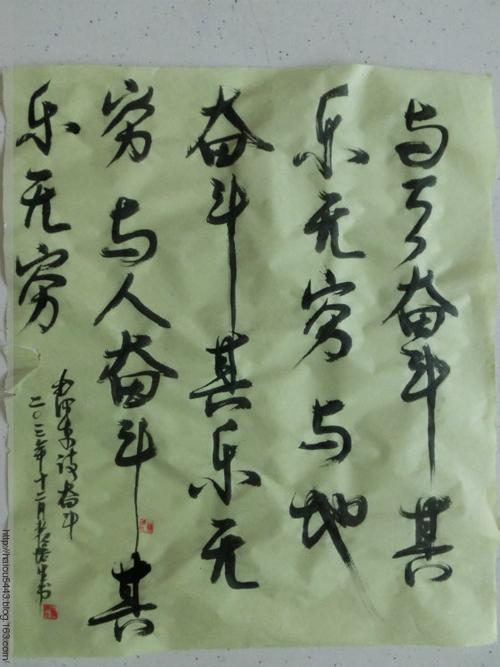 与天奋斗其
乐无穷与地
奋斗其乐无
穷与人奋斗其
乐无穷
毛泽东诗奋斗
二〇一三年十二月书
http://halou5443.blog.163.com/